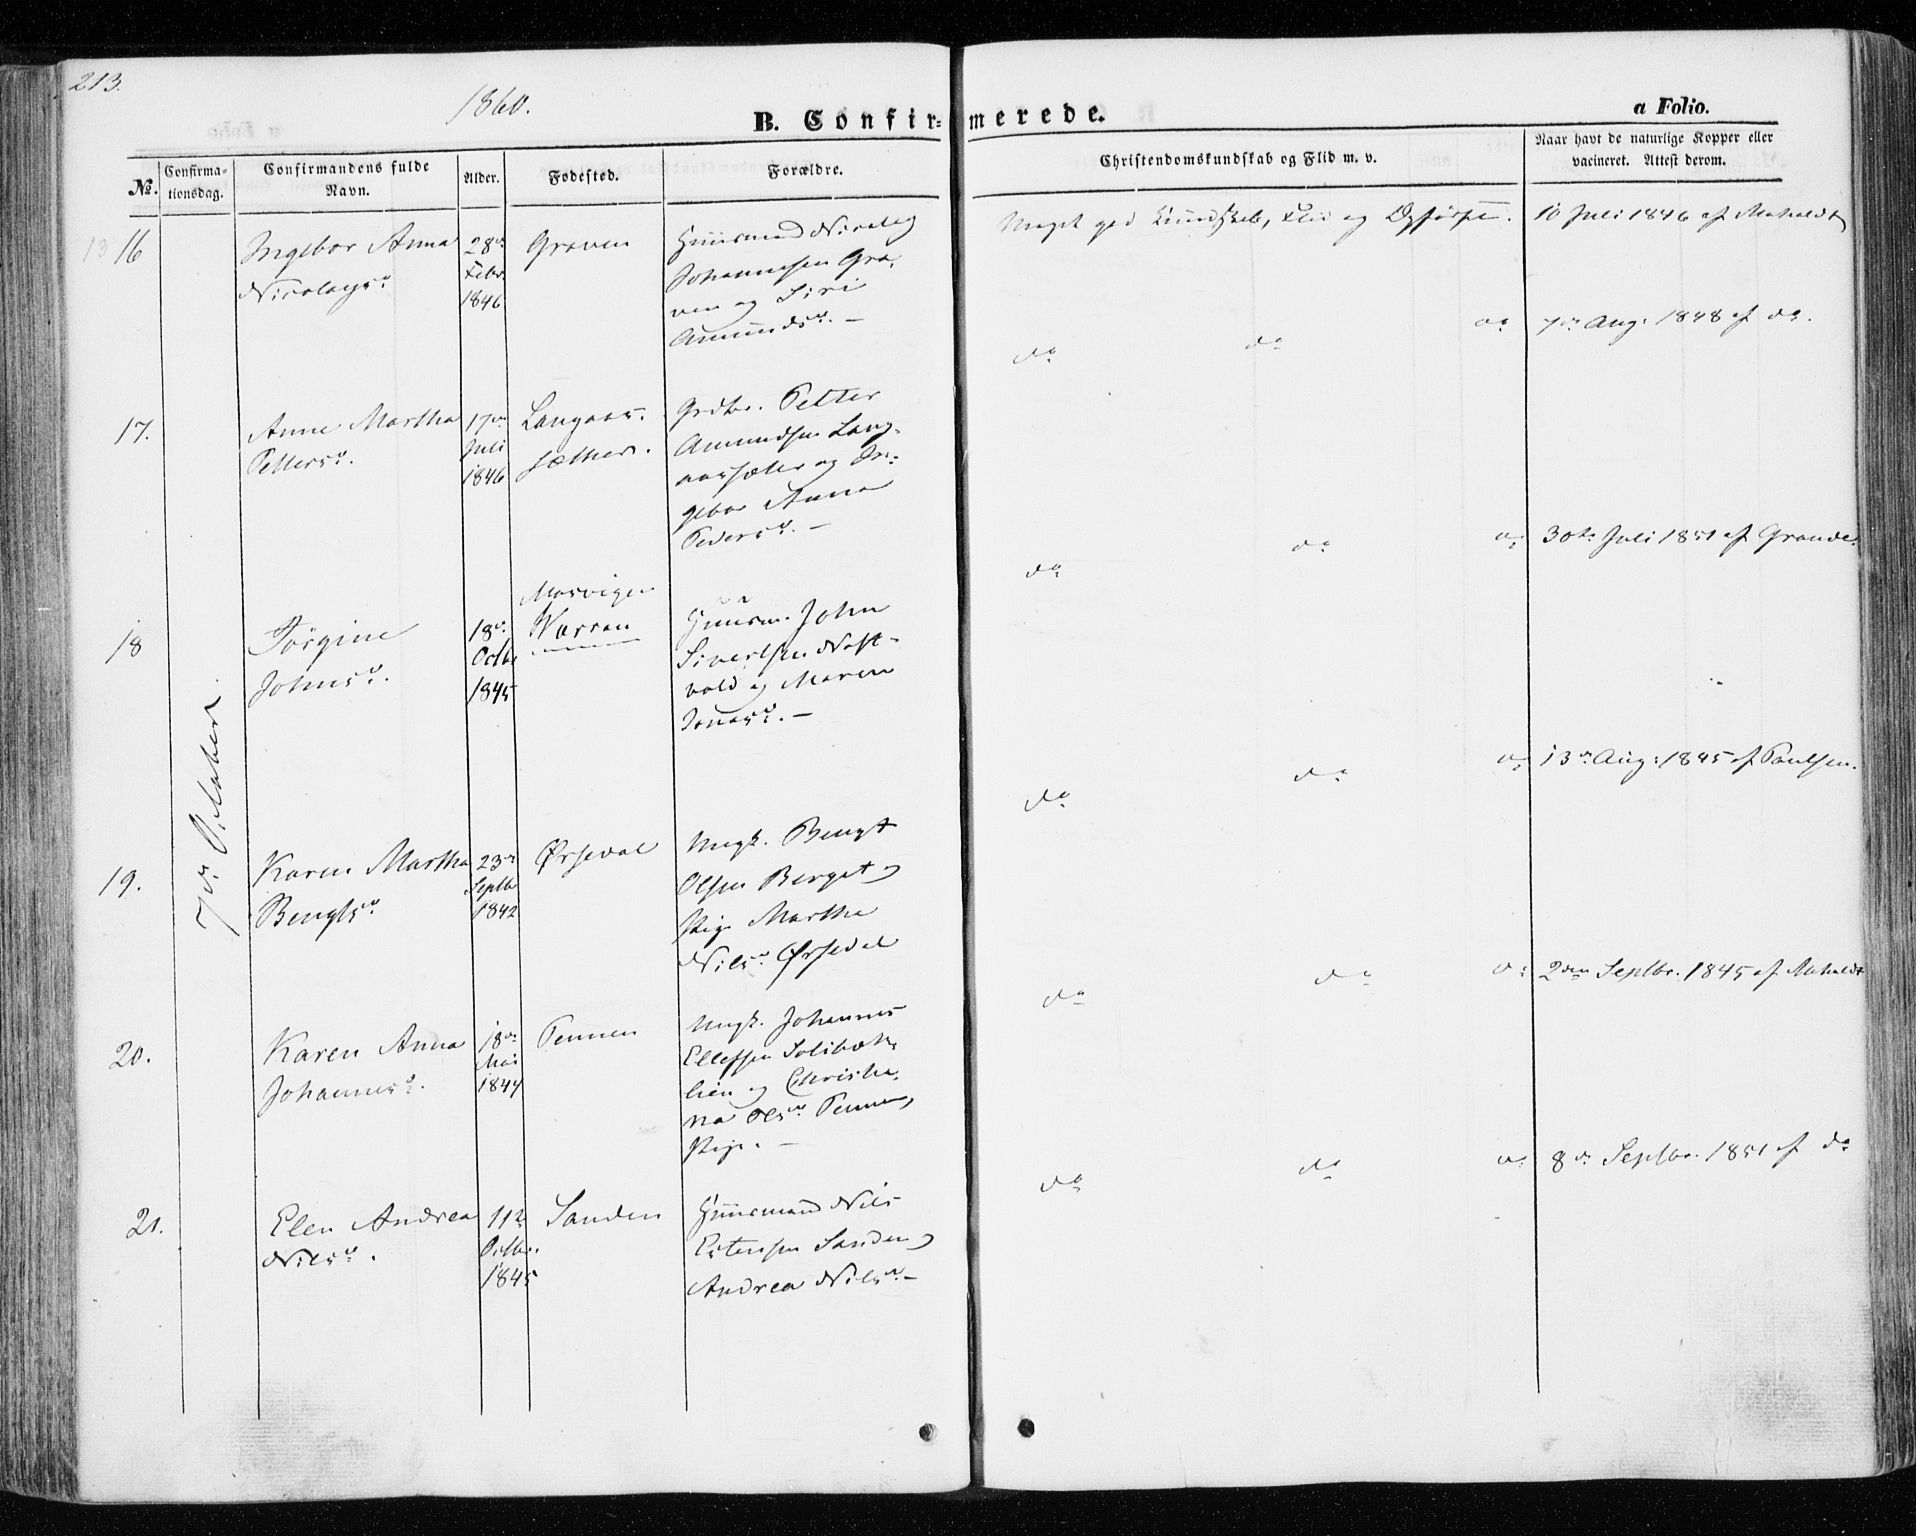 213.
1860.
B. Confirmerede.
a Folio.
No.
Confirmationsdag.
Confirmandens fulde Navn.
Alder.
Fødested.
Forældre.
Christendomskundskab og Flid m. v.
Naar havt de naturlige Kopper eller
vacineret. Attest derom.
7de October
13 16
Ingebor Anna
Nicolaysd.
28de
Febr.
1846
Graven
Huusmand Nicolay
Johannesen Gra-
ven og Siri
Amundsd. –
Meget god Kundskab, Flid og Opførsel.
10 Juli 1846 af
17.
Anne Martha
Pettersd.
17de
Juli
1846
Langaas-
sæther.
Grdbr. Petter
Amundsen Lang-
aassæter og In-
gebor Anna
Pedersd. –
do do do
7de Aug. 1848 af do.
18
Jørgine
Johnsd.
18de
Octbr
1845
Mosvigen
Warran
Huusm. John
Sivertsen
vold og Maren
Jonasd. –
do do do
30te Juli 1851 af Grande.
19.
Karen Martha
Bengtsd.
23de
Septbr
1842
Ørsedal
Ungk. Bengt
Olsen Berget og
Pige Martha
Nilsd. Ørsedal
do do do
13de Aug: 1845 af Poulsen.
20.
Karen Anna
Johannesd.
18de
Mai
1844
Tennen
Ungk. Johannes
Ellefsen
lien og Christia-
na Olsd. Tennen,
Pige. –
do do do
2den Septbr. 1845 af
21.
Elen Andrea
Nilsd.
11te
Octbr.
1845
Sanden
Huusmand Nils
Estensen Sanden og
Andrea Nilsd. –
do do do
8de Septbr. 1851 af do